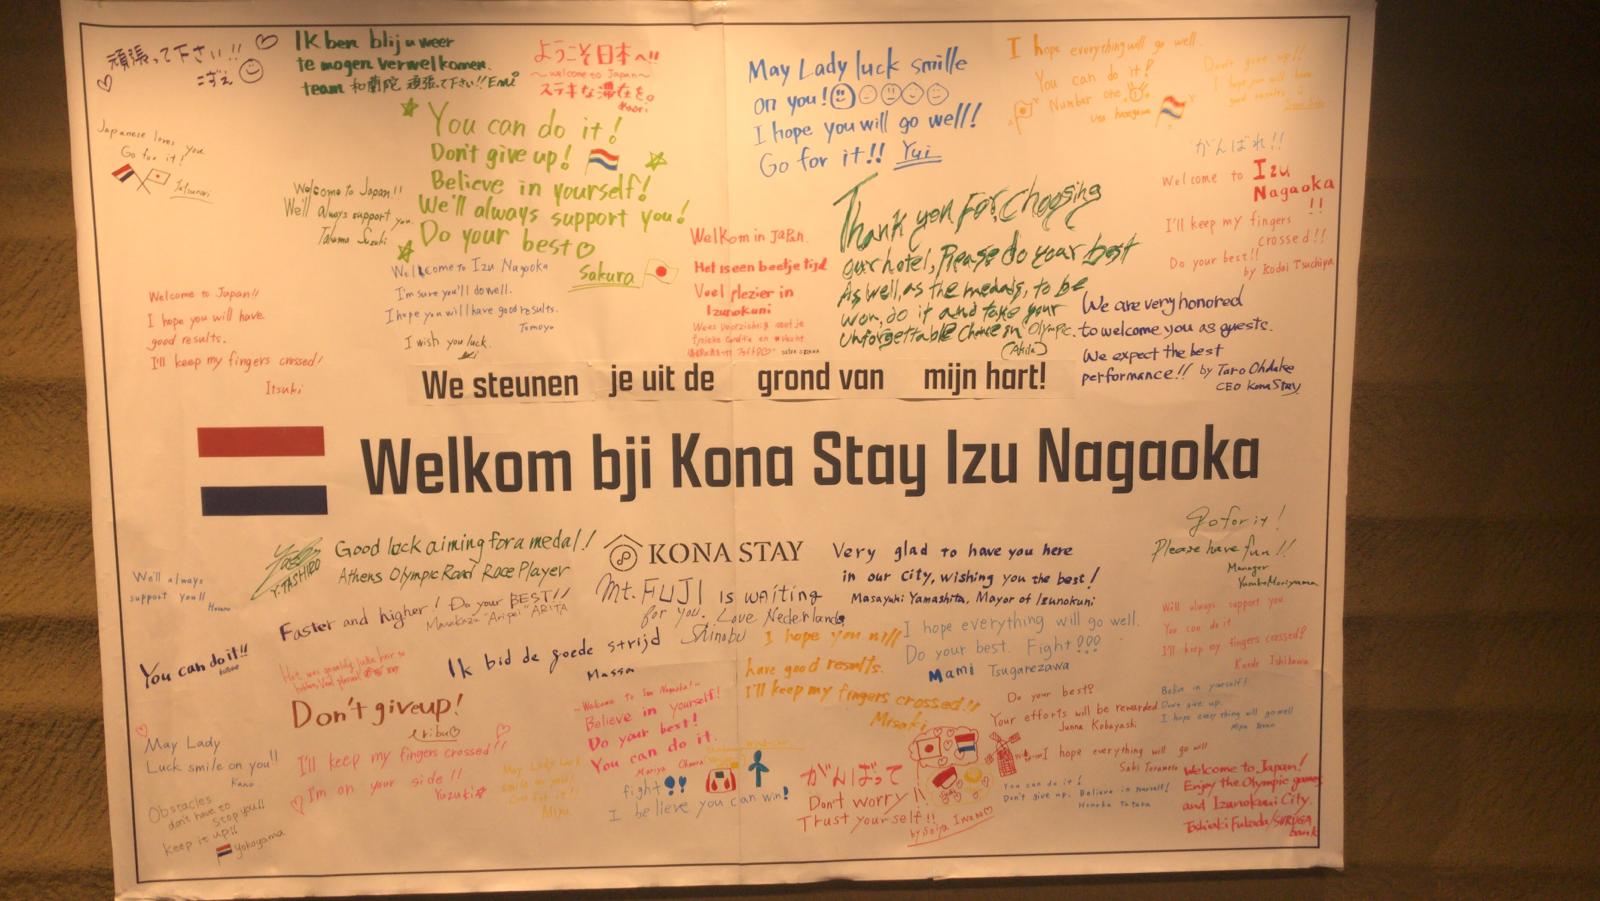 頑張って下さい!!
こずえ
Ik ben blij u weer
te mogen verwelkomen.
team 和蘭陀 頑張て下さい!! Emi
ようこそ日本へ!!
~welcome to Japan~
ステキな滞在を。
May Lady luck smille
on you!
I hope you will go well!
Go for it!! Yui
I hope everything will go well.
You can do it!
Number one
Don't give up!!
I hope you will have
good results.
Japanese loves you
Go for it!
Tatsunari
You can do it!
Don't give up!
Believe in yourself!
We'll always support you!
Do your best
Sakura
Welcome to Japan!!
We'll always support you.
Takuma Suzuki
がんばれ!!
Welcome to Izu
Nagaoka
!!
I'll keep my fingers
crossed!!
Do your best!!
by Kodai Tsuchiya
Thank you For Choosing
our hotel, Please do your best
As well, as the medals, to be
won, do it and take your
unforgettable Chance in Olympic.
(Akila)
Welkom in Japan.
Het is een beetje tijd
Veel plezier in
Izunokuni
Welcome to Izu Nagaoka
I'm sure you'll do well.
I hope you will have good results.
Tomoyo
I wish you luck.
Welcome to Japan!!
I hope you will have
good results.
I'll keep my fingers crossed!
Itsuki
We are very honored
to welcome you as guests.
We expect the best
performance!! by Taro Ohdake
CEO Kona Stay
We steunen je uit de grond van mijn hart!
Welkom bji Kona Stay Izu Nagaoka
Good lock aiming for a medal!
Athens Olympic Road Race Player
Y.TASHIRO
KONA STAY
Very glad to have you here
in our city, wishing you the best!
Masayuki Yamashita, Mayor of Izunokuni
Go for it!
Please have fun!!
Manager
Yumiko Moriyama
We'll always
support you!!
Faster and higher! Do your BEST!!
Masakazu "Aripei" ARITA
Mt. FUJI is waiting
for you. Love Nederlands
Shinobu
You can do it!!
Ik bid de goede strijd
Massa
I hope you will
have good results.
I'll keep my fingers crossed!!
Misaki
I hope everything will go well.
Do your best. Fight!!!
Mami Tsugarezawa
Will always support you
You can do it
I'll keep my fingers crossed!
Ishikawa
Don't give up!
I'll keep my fingers crossed!!
I'm on your side!!
Yuzuki
~Welcome to Izu Nagaoka!~
Believe in yourself!
Do your best!
You can do it.
Do your best!
Your efforts will be rewarded
Junna Kobayashi
Belive in yourself!
Don't give up.
I hope everything will go well
May Lady
Luck smile on you!!
Kano
May Lady Luck
smile on you!!
Go for it!!
Miyu
fight!!
I believe you can win!
がんばって
Don't worry!!
Trust yourself!!
by Seiya Iwano
I hope everything will go well
Saki Toramoto
You can do it!
Don't give up. Believe in yourself!
Honoka
Welcome to Japan!
Enjoy the Olympic games
and Izunokuni City.
Toshiaki Fukuda/SURUGA
bank
Obstacles
don't have to
stop you!!
Keep it up!!
Yokoyama